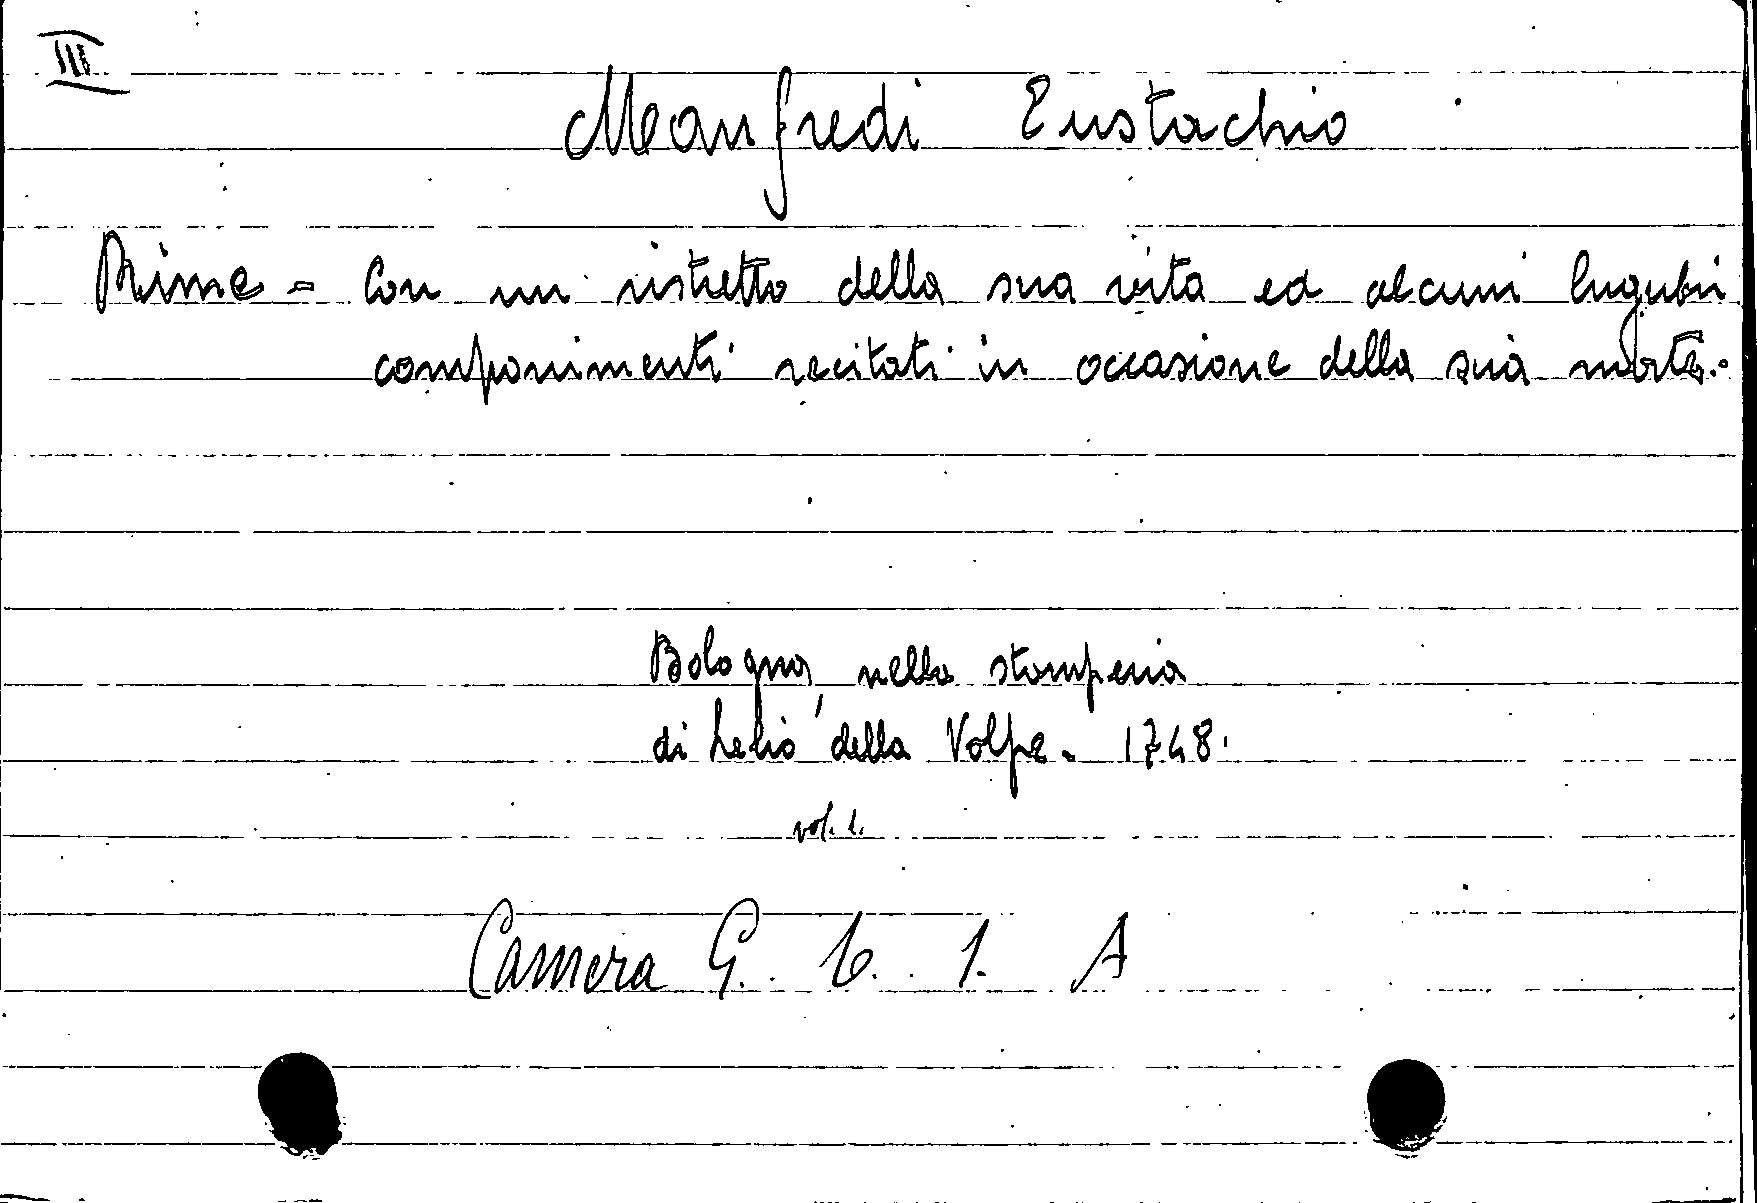 III
Manfredi Eustachio
Rime - Con un ristretto della sua vita ed alcuni lugubri
componimenti recitati in occasione della sua morte.
Bologna, nella stamperia
di Lelio della Volpe. 1748.
vol. 1.
Camera G. 1. A